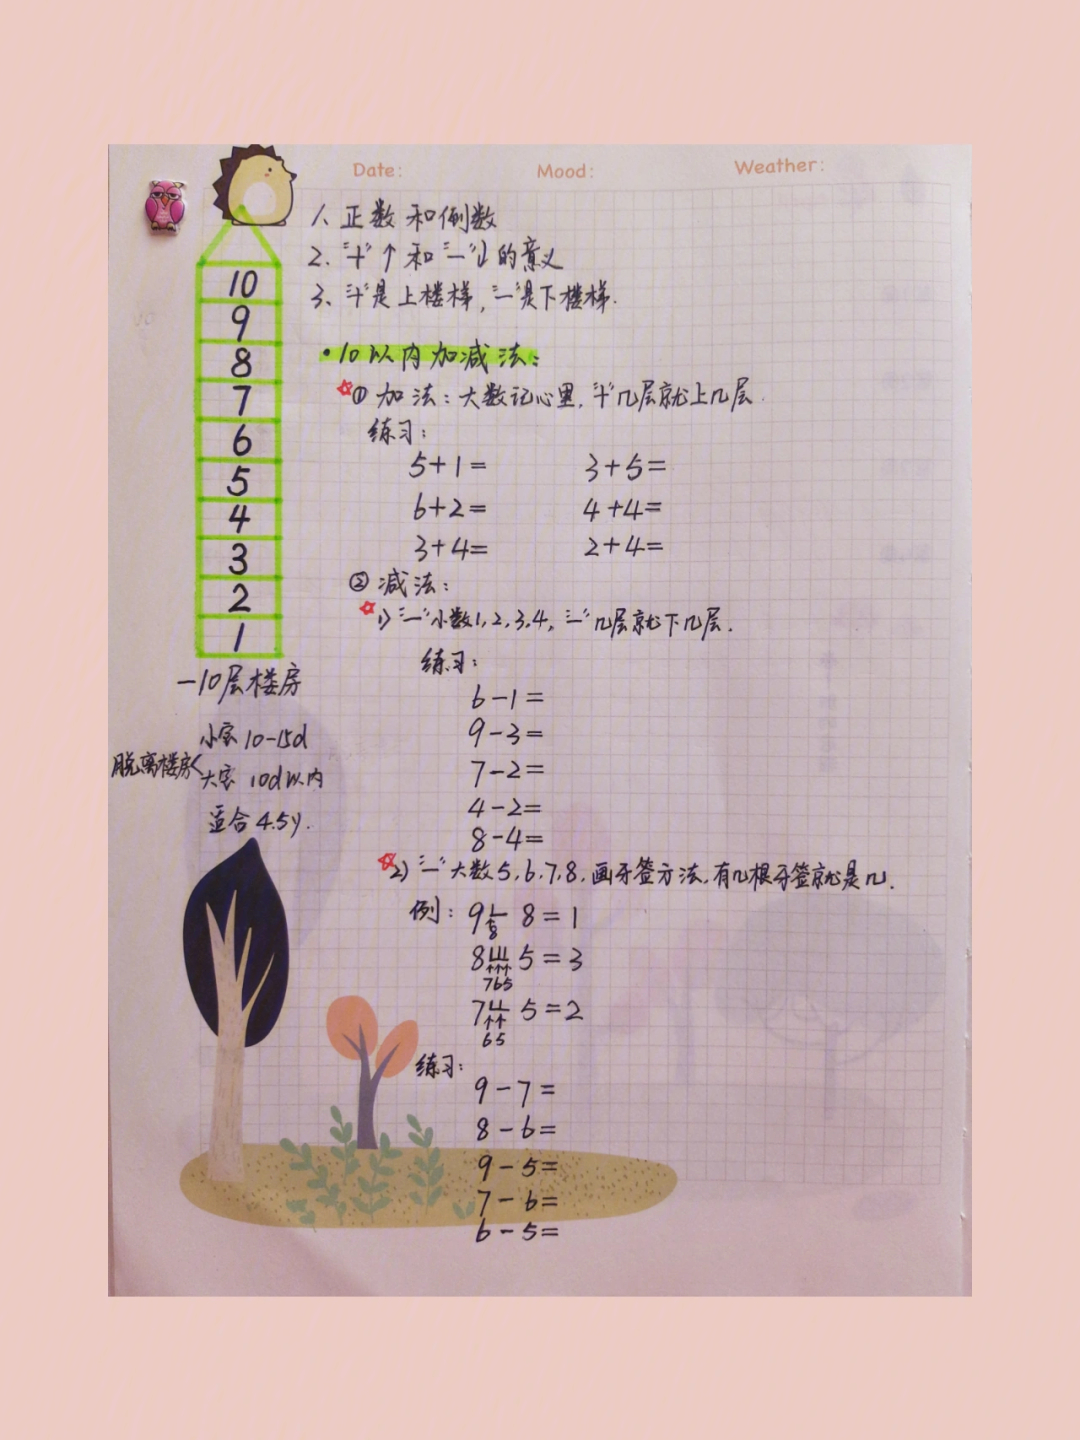 Date:
Mood:
Weather:
1、正数和例数
2、"+"↑和"一"↓的意义
3、"+"是上楼梯,"一"是下楼梯.
10
9
8
7
6
5
4
3
2
1
一10层楼房
脱离楼房<
小宝10-15d
大宝 10d以内
适合4.5y.
·10以内加减法:
① 加法:大数记心里,"+"几层就上几层.
练习:
5+1= 3+5=
6+2= 4+4=
3+4= 2+4=
② 减法:
1)"一"小数1,2,3,4,"一"几层就下几层.
练习:
6-1=
9-3=
7-2=
4-2=
8-4=
2)"一"大数5,6,7,8,画牙签方法,有几根牙签就是几.
例: 9-8=1
8
8-5=3
↑↑↑
765
7-5=2
↑↑
65
练习:
9-7=
8-6=
9-5=
7-6=
6-5=